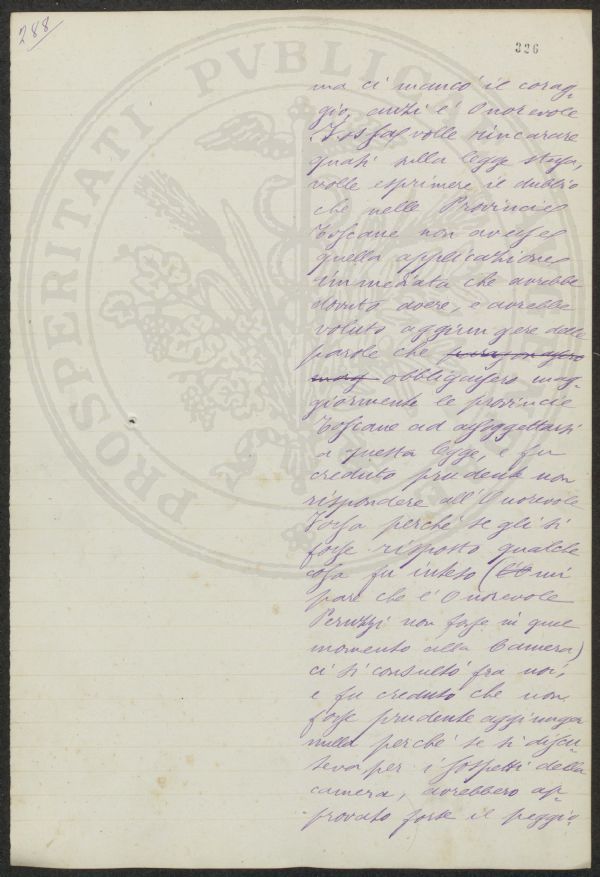 288
326
PROSPERITATI PVBLICAE
ma ci mancò il corag-
gio, anzi l'Onorevole
Tossa volle rincarare
quasi nella legge stessa,
volle esprimere il dubbio
che nelle Provincie
Toscane non avesse
quella applicazione
immediata che avrebbe
dovuto avere, e avrebbe
voluto aggiungere delle
parole che
mag obbligassero mag-
giormente le provincie
Toscane ad assoggettarsi
a questa legge, e fu
creduto prudente non
rispondere all'Onorevole
perchè se gli si
fosse risposto qualche
cosa fu inteso ( mi
pare che l'Onorevole
Peruzzi non fosse in quel
momento alla Camera)
ci si consultò fra noi,
e fu creduto che non
fosse prudente aggiunger
nulla perchè se si discu-
teva per i sospetti della
camera, avrebbero ap-
provato forse il peggio